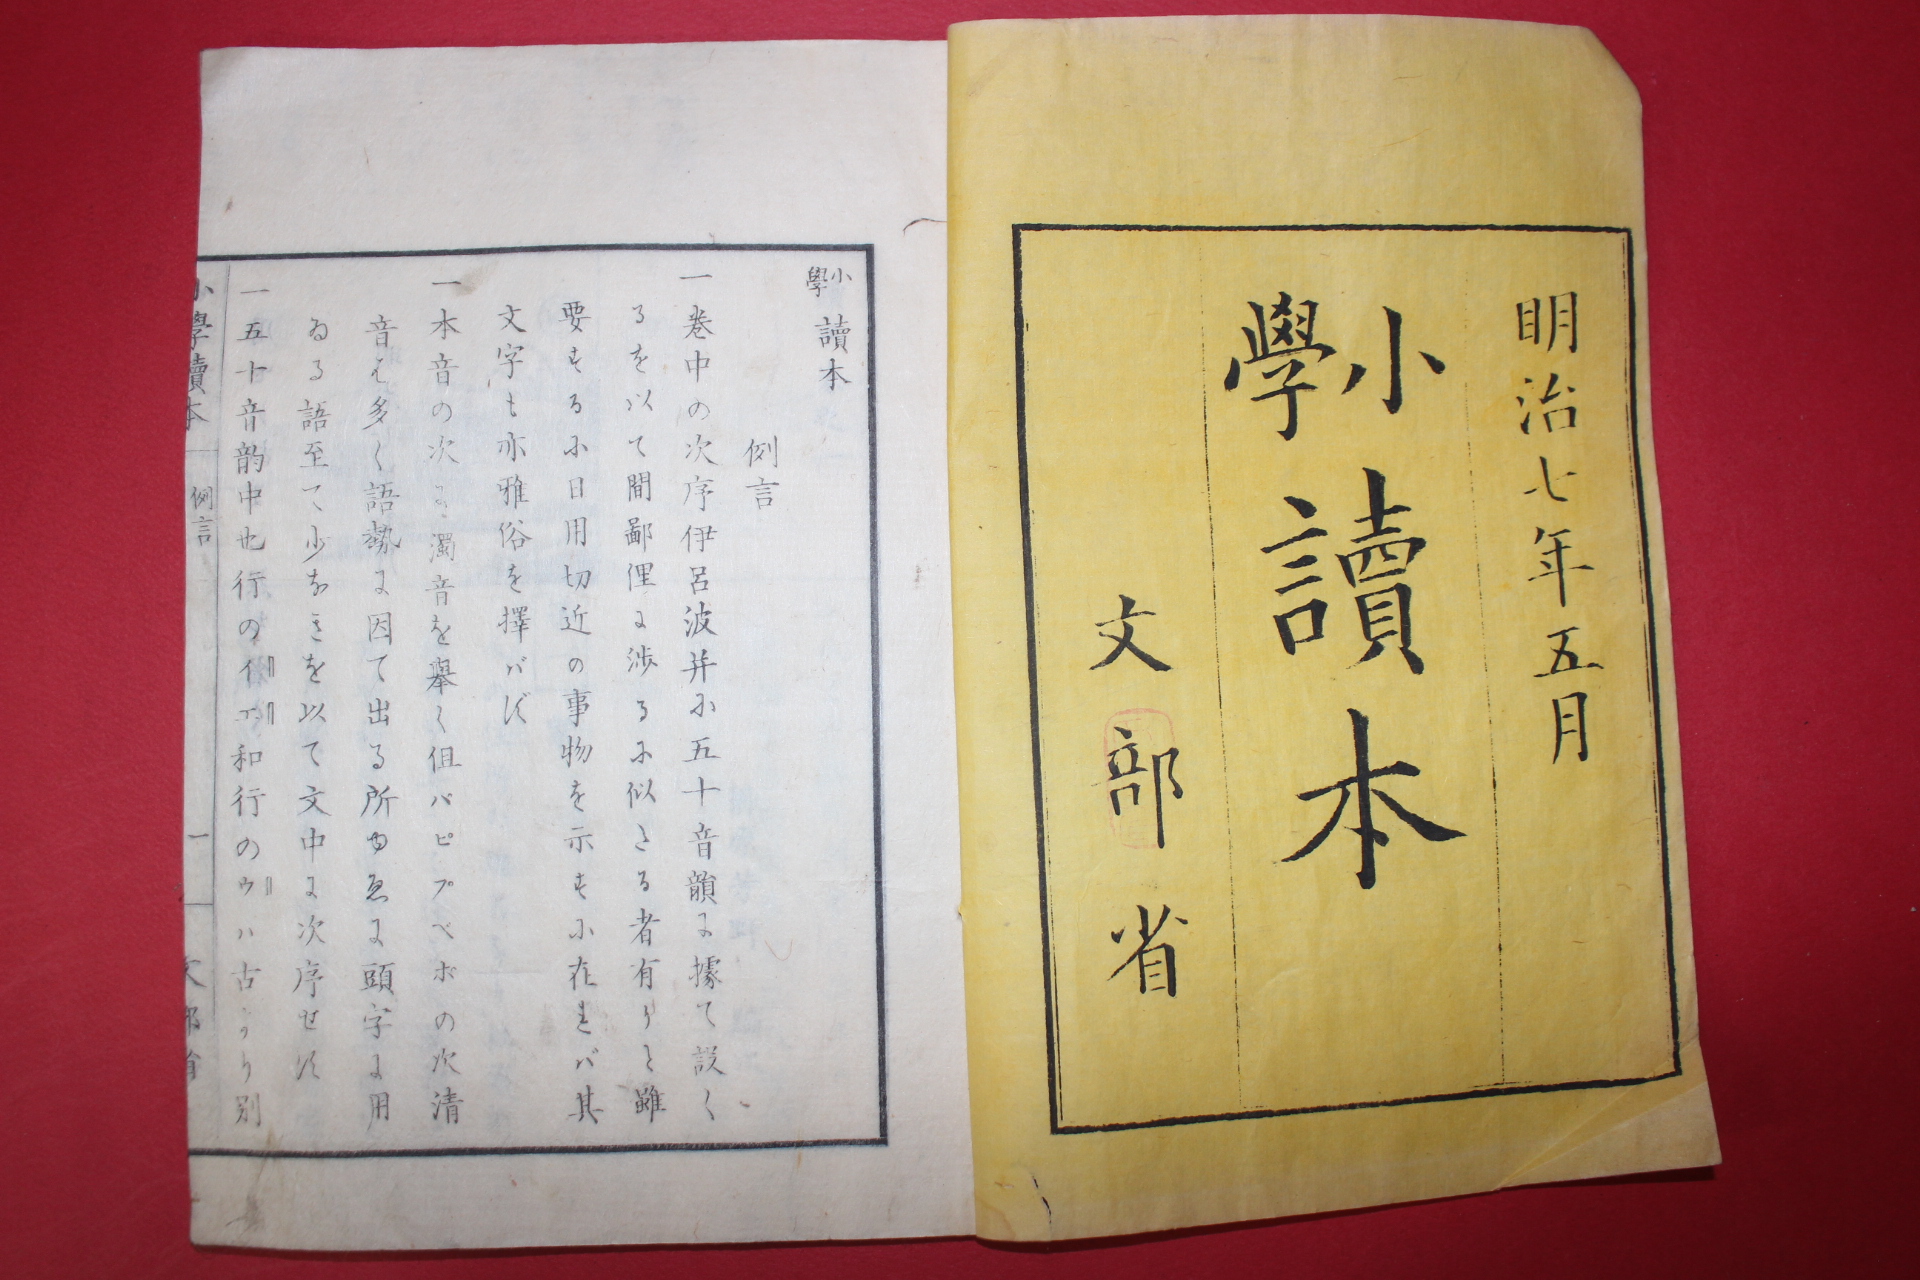 明治七年五月
小學讀本
文部省
小學讀本
例言
一卷中の次序伊呂波并に五十音韻に據て説く
るを以て間鄙俚に渉るに似たる者有りと雖
要するに日用切近の事物を示すに在れバ其
文字も亦雅俗を擇バず
一本音の次に濁音を擧く但パピプペポの次清
音は多く語勢に因て出る所ゆゑに頭字に用
ゐる語至て少なきを以て文中に次序せず
一五十音韵中也行のイエ和行のウハ古より別
小學讀本
例言
一
文部省